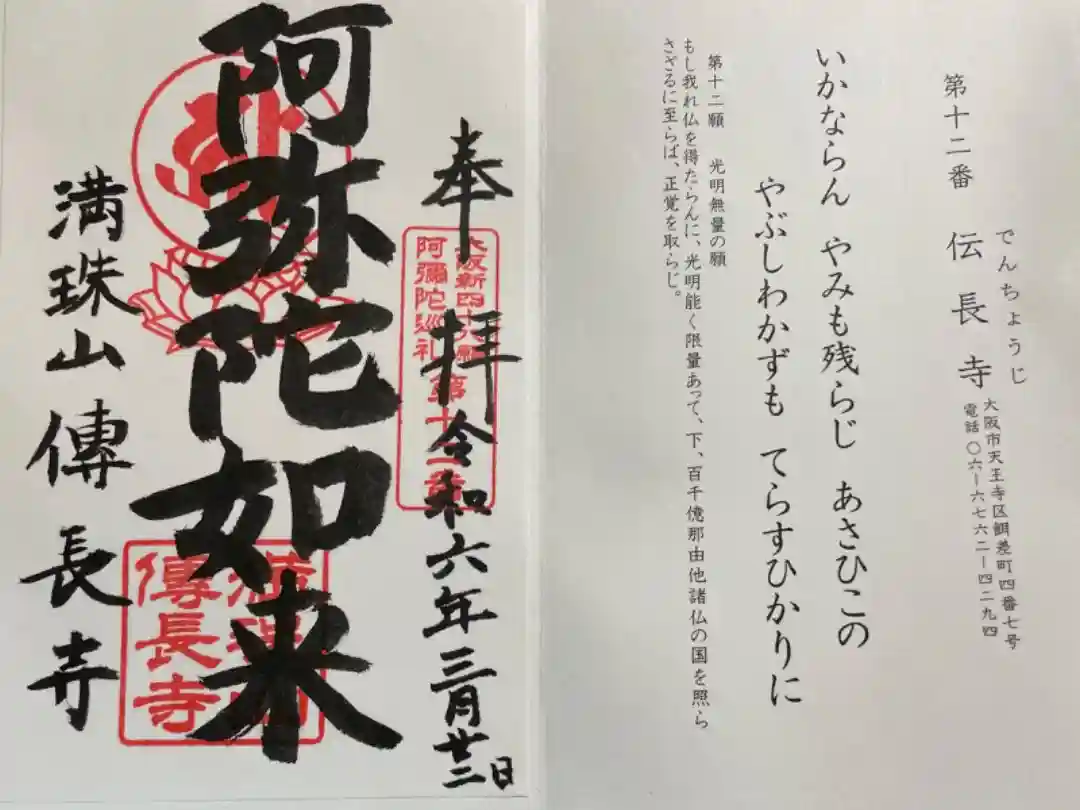 第十二番 伝長寺
でんちょうじ
大阪市天王寺区餌差町四番七号
電話〇六ー六七六二ー四二九四
いかならん やみも残らじ あさひこの
やぶしわかずも てらすひかりに
第十二願 光明無量の願
もし我れ仏を得たらんに、光明能く限量あって、下、百千億那由他諸仏の国を照ら
さざるに至らば、正覚を取らじ。
奉拝 令和六年三月廿二日
大阪新四十八願
阿彌陀巡礼 第十二番
阿弥陀如来
満珠山傳長寺
傳長寺